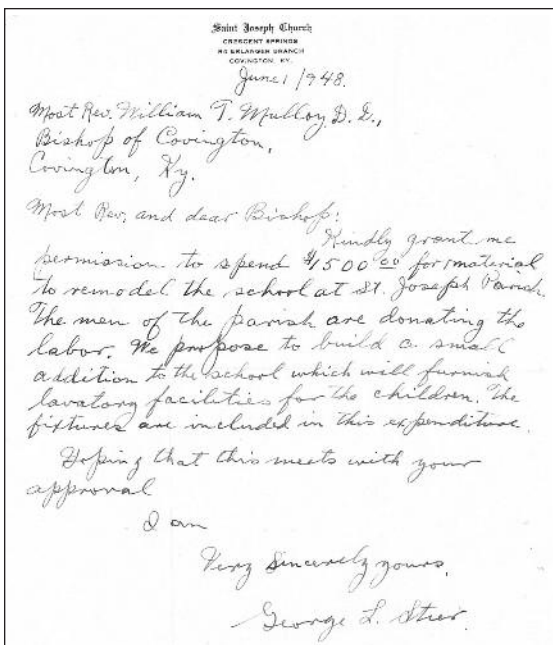 Saint Joseph Church
CRESCENT SPRINGS
RR ERLANGER BRANCH
COVINGTON, KY.
June 1 1948.
Most Rev. William T. Mulloy D.D.,
Bishop of Covington,
Covington, Ky.
Most Rev. and dear Bishop:
Kindly grant me
permission to spend $1500 00 for material
to remodel the school at St. Joseph Parish.
The men of the parish are donating the
labor. We propose to build a small
addition to the school which will furnish
lavatory facilities for the children. The
fixtures are included in this expenditure.
Hoping that this meets with your
approval
I am
Very Sincerely yours,
George L. Stier.